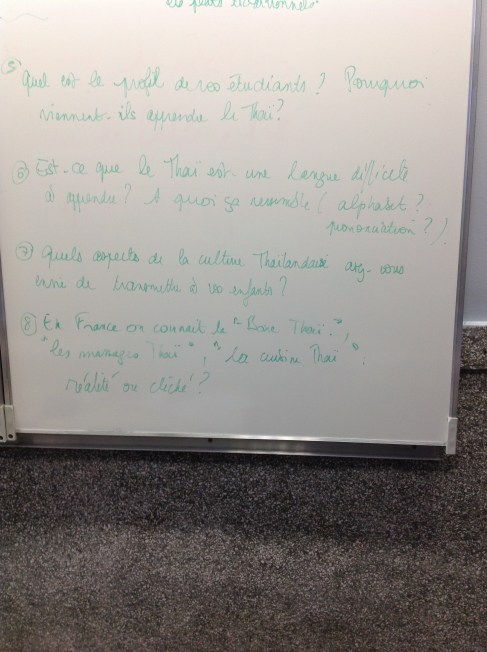 les plats traditionnels.
⑤ Quel est le profil de vos étudiants ? Pourquoi
viennent-ils apprendre le Thaï ?
⑥ Est-ce que le Thaï est une langue difficile
à apprendre ? A quoi ça ressemble ( alphabet ?
prononciation ? ).
⑦ Quels aspects de la culture Thaïlandaise avez-vous
envie de transmettre à vos enfants ?
⑧ En France on connait la "Boxe Thaï",
"les massages Thaï", "la cuisine Thaï".
réalité ou cliché ?